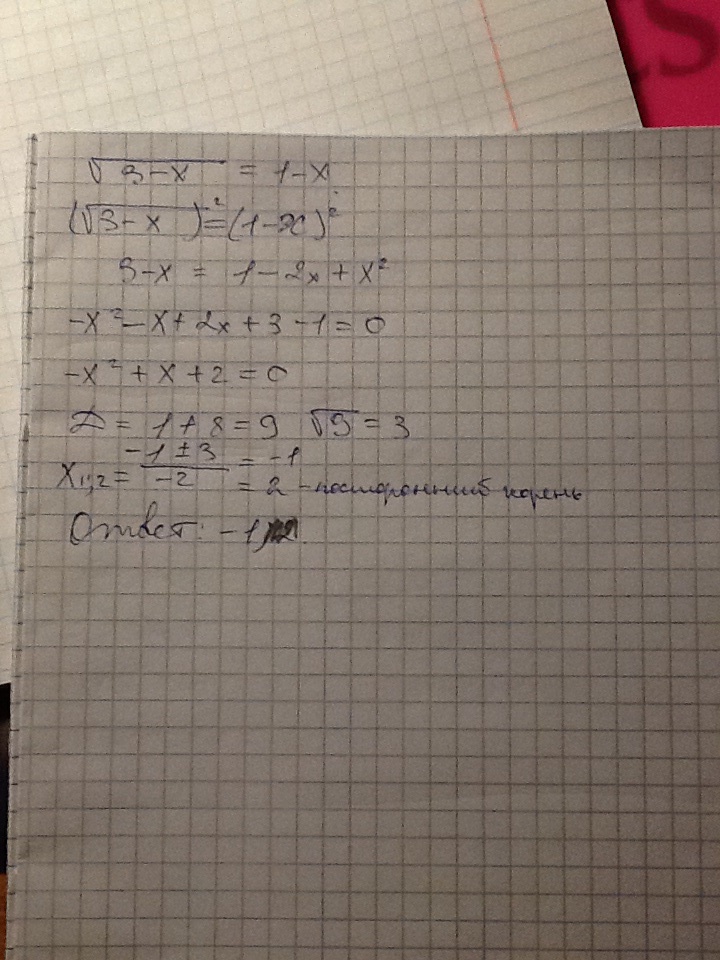 √3-x = 1-x
(√3-x)² = (1-x)²
3-x = 1-2x+x²
-x²-x+2x+3-1=0
-x²+x+2=0
D = 1+8=9 √9=3
x₁,₂ = -1±3/-2 = -1
= 2 - посторонний корень
Ответ: -1